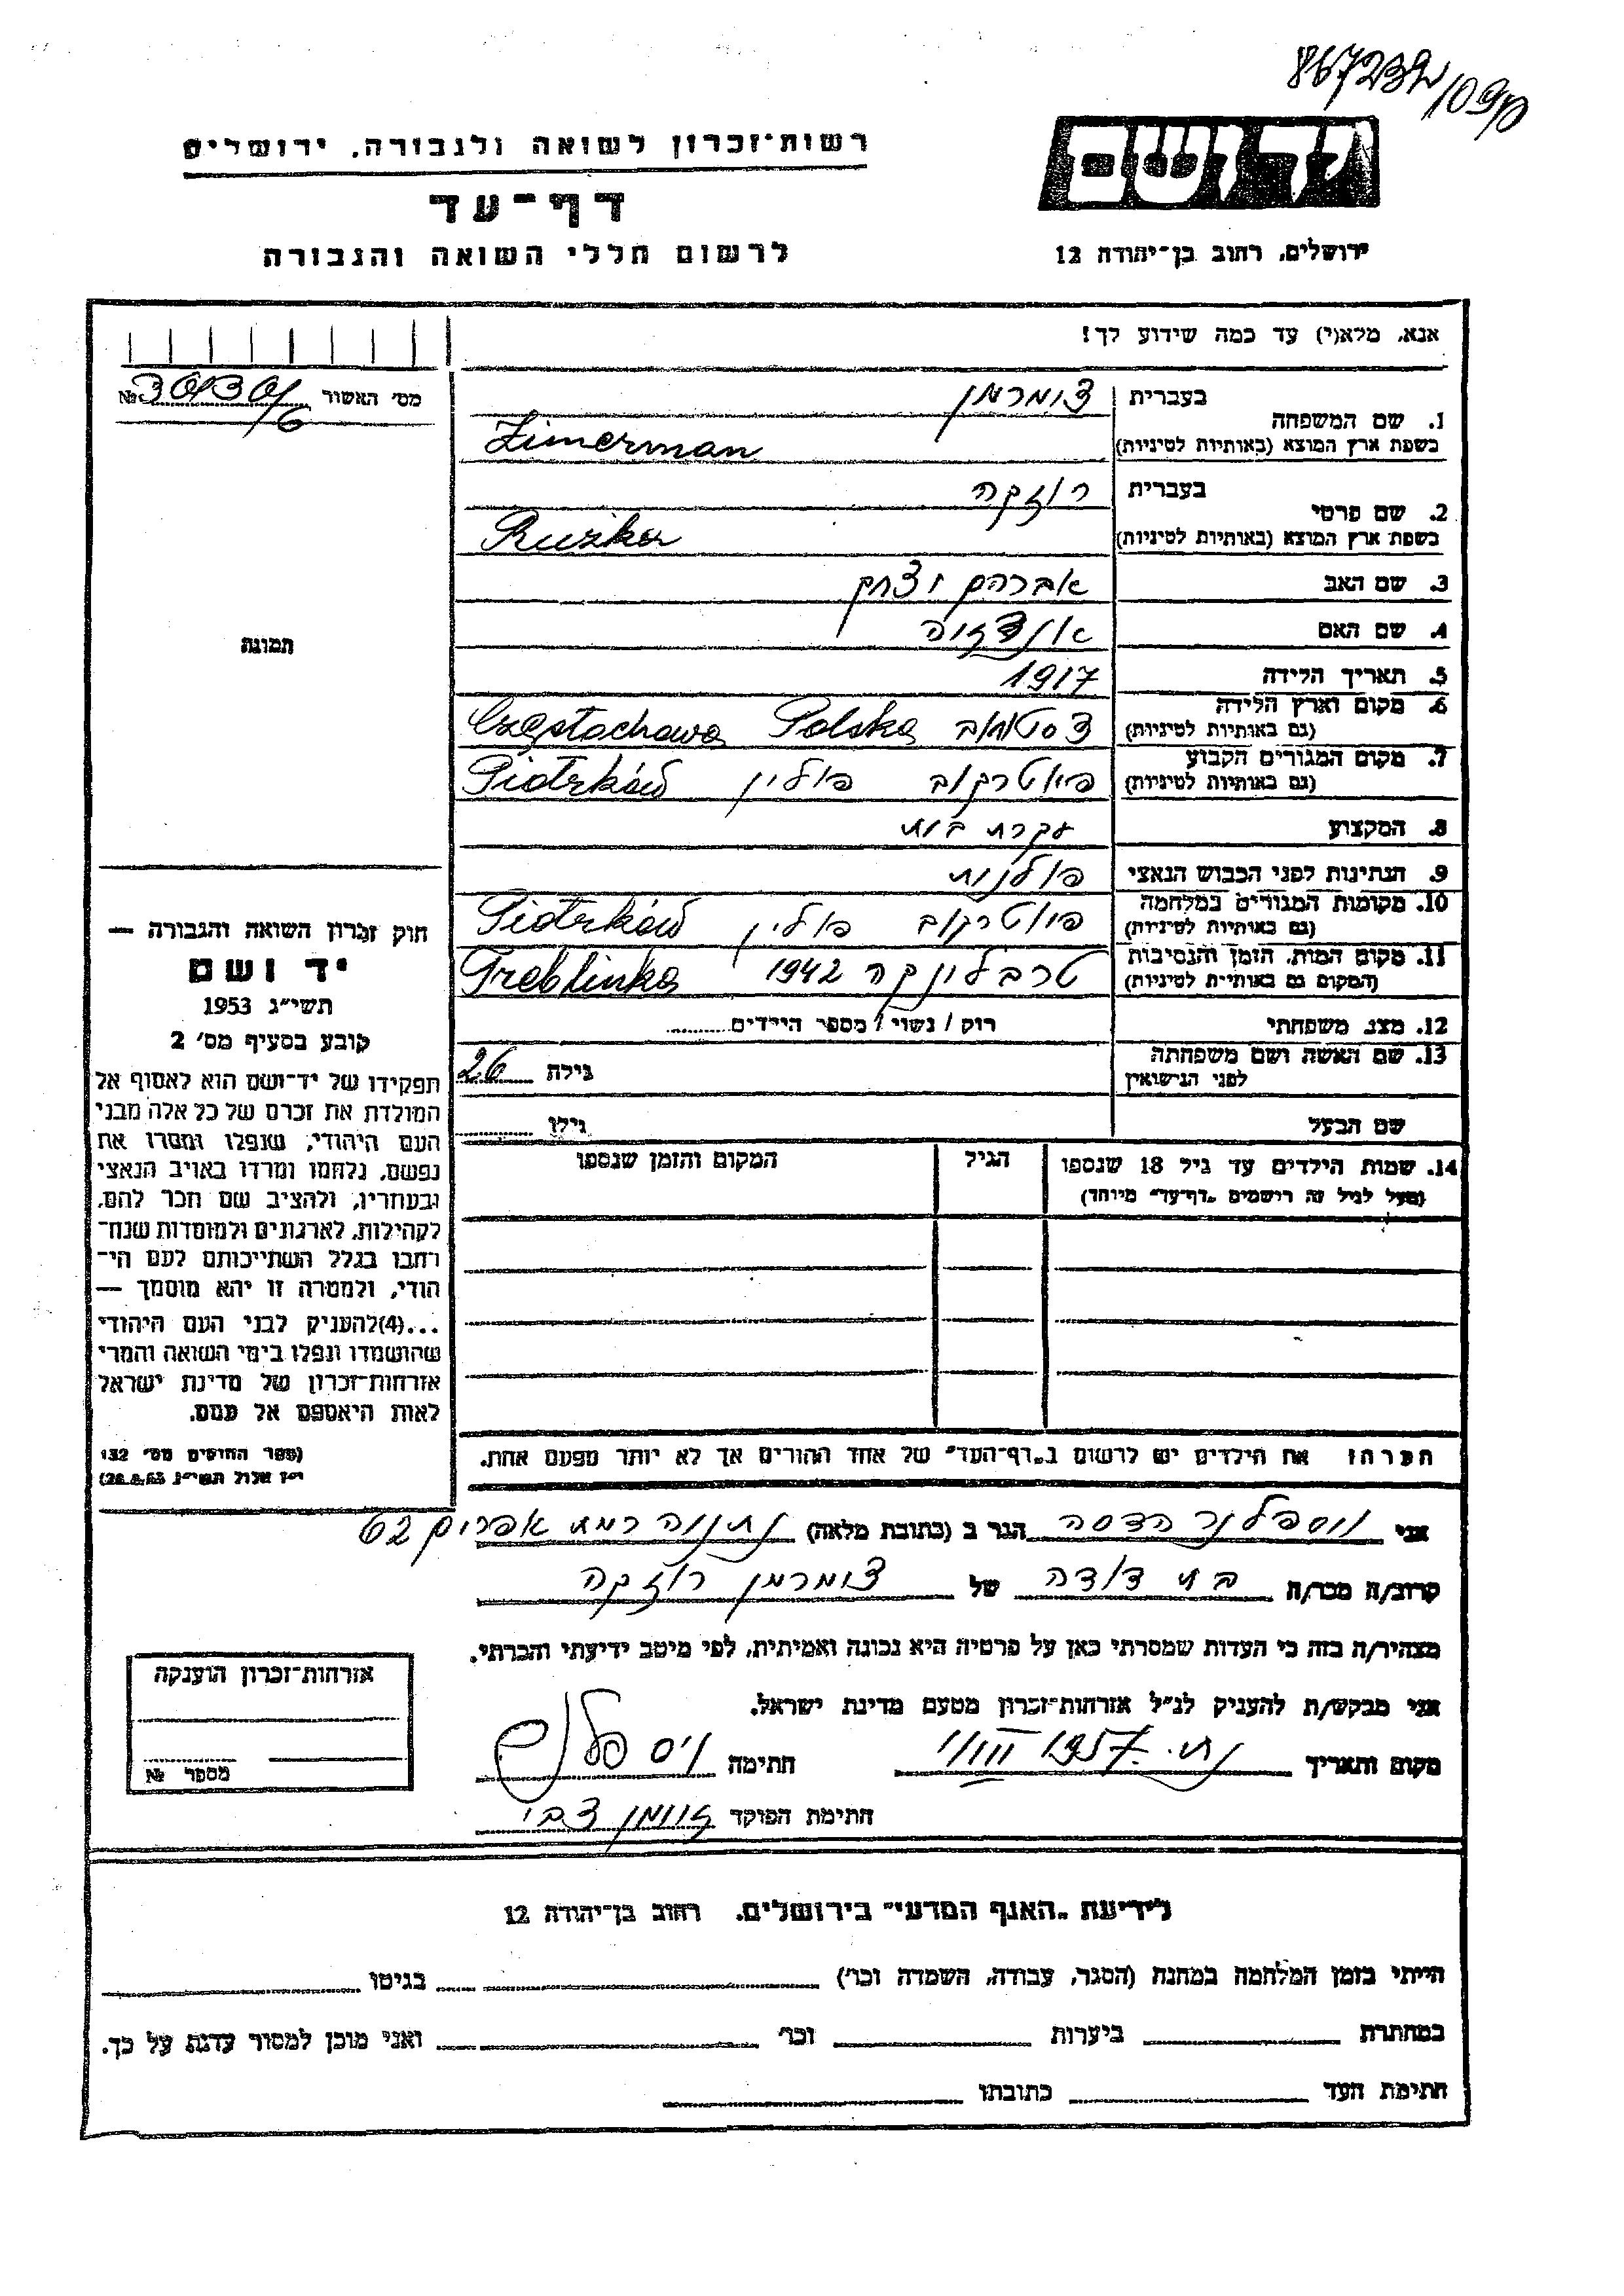 רשות־זכרון לשואה ולגבורה, ירושלים
דף־עד
לרשום חללי השואה והגבורה
יד ושם
ירושלים, רחוב בן־יהודה 12
אנא, מלא(י) עד כמה שידוע לך!
מס׳ האשור №
תמונה
1. שם המשפחה בעברית צימרמן
בשפת ארץ המוצא (באותיות לטיניות) Zimerman
2. שם פרטי בעברית רוזקה
בשפת ארץ המוצא (באותיות לטיניות) Ruzka
3. שם האב אברהם יצחק
4. שם האם
5. תאריך הלידה 1917
6. מקום וארץ הלידה
(גם באותיות לטיניות) Częstochowa Polska
7. מקום המגורים הקבוע
(גם באותיות לטיניות) פיוטרקוב פולין Piotrków
8. המקצוע עקרת בית
9. הנתינות לפני הכבוש הנאצי פולנית
10. מקומות המגורים במלחמה
(גם באותיות לטיניות) פיוטרקוב פולין Piotrków
11. מקום המות, הזמן והנסיבות
(המקום גם באותיות לטיניות) טרבלינקה 1942 Treblinka
12. מצב משפחתי רוק / נשוי / מספר הילדים
13. שם האשה ושם משפחתה
לפני הנישואין גילה 26
שם הבעל גילו
14. שמות הילדים עד גיל 18 שנספו הגיל המקום והזמן שנספו
(מעל לגיל זה רושמים „דף־עד״ מיוחד)
חוק זכרון השואה והגבורה —
יד ושם
תשי״ג 1953
קובע בסעיף מס׳ 2
תפקידו של יד־ושם הוא לאסוף אל
המולדת את זכרם של כל אלה מבני
העם היהודי, שנפלו ומסרו את
נפשם, נלחמו ומרדו באויב הנאצי
ובעוזריו, ולהציב שם וזכר להם,
לקהילות, לארגונים ולמוסדות שנח־
רבו בגלל השתייכותם לעם הי־
הודי, ולמטרה זו יהא מוסמך —
...(4)להעניק לבני העם היהודי
שהושמדו ונפלו בימי השואה והמרי
אזרחות־זכרון של מדינת ישראל
לאות היאספם אל עמם.
(ספר החוקים מס׳ 132
י״ז אלול תשי״ג 28.8.53)
הערה: את הילדים יש לרשום ב„דף־העד״ של אחד ההורים אך לא יותר מפעם אחת.
אני ויספלנר הדסה הגר ב (כתובת מלאה) נתניה רמת אפרים 62
קרוב/ה מכר/ה בת דודה של צימרמן רוזקה
מצהיר/ה בזה כי העדות שמסרתי כאן על פרטיה היא נכונה ואמיתית, לפי מיטב ידיעתי והכרתי.
אני מבקש/ת להעניק לנ״ל אזרחות־זכרון מטעם מדינת ישראל.
מקום ותאריך חתימה
חתימת הפוקד
אזרחות־זכרון הוענקה
מספר №
לידיעת „האגף המדעי״ בירושלים, רחוב בן־יהודה 12
הייתי בזמן המלחמה במחנה (הסגר, עבודה, השמדה וכו׳) בגיטו
במחתרת ביערות וכו׳ ואני מוכן למסור עדות על כך.
חתימת העד כתובתו